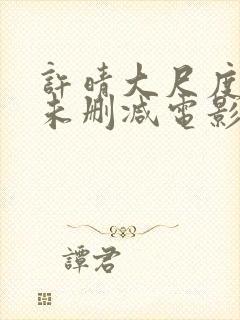 許晴大尺度
未刪減電影
譚君